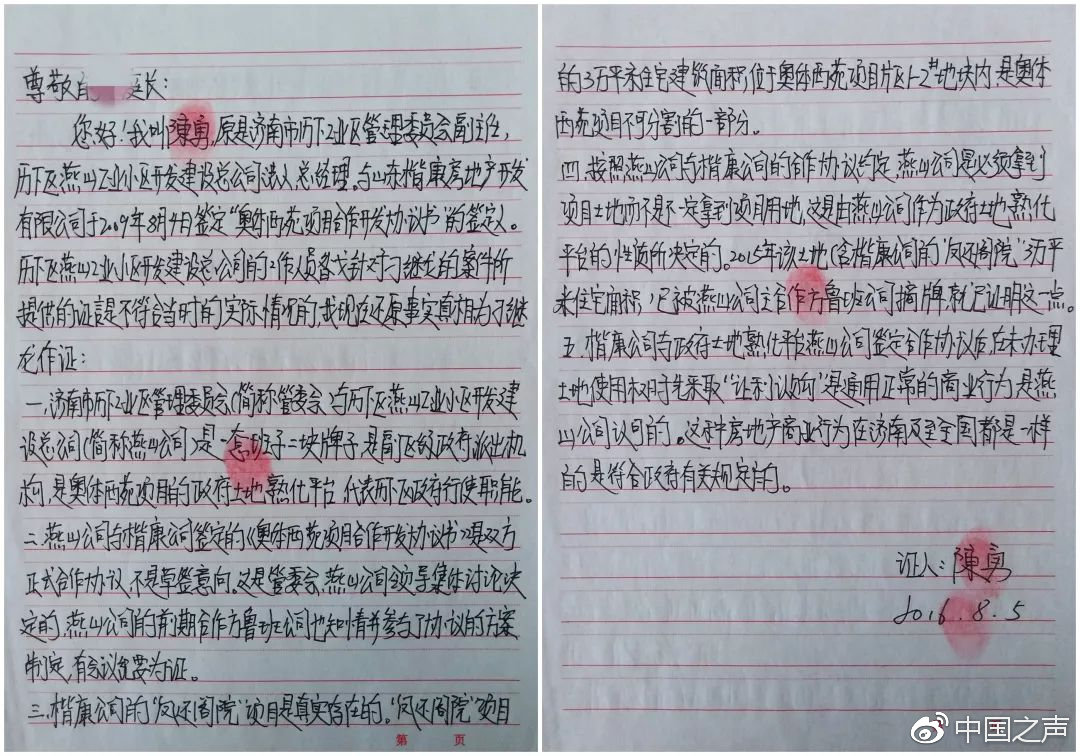 尊敬的 庭长：
您好！我叫陳勇，原是济南市历下工业区管理委员会副主任，
历下区燕山工业小区开发建设总公司法人、总经理。与山东楷康房地产开发
有限公司于2009年8月4日鉴定“奥体西苑项目合作开发协议书”的鉴定人。
历下区燕山工业小区开发建设总公司的工作人员 针对刁继龙的案件所
提供的证言是不符合当时的实际情况的，我现在还原事实真相为刁继
龙作证：
一、济南市历下工业区管理委员会（简称管委会）与历下区燕山工业小区开发建
设总公司（简称燕山公司）是一套班子二块牌子，是副区级政府派出机
构，是奥体西苑项目的政府土地熟化平台，代表历下区政府行使职能。
二、燕山公司与楷康公司鉴定的《奥体西苑项目合作开发协议书》是双方
正式合作协议，不是草签意向。这是管委会、燕山公司领导集体讨论决
定的，燕山公司的前期合作方鲁班公司也知情并参与了协议的方案
制定，有会议纪要为证。
三、楷康公司的“凤还阁院”项目是真实存在的。“凤还阁院”项目
第 页
的3万平米住宅建筑面积，位于奥体西苑项目片区1-2#地块内，是奥体
西苑项目不可分割的一部分。
四、按照燕山公司与楷康公司的合作协议约定，燕山公司是必须拿到
项目土地而不是不一定拿到项目用地，这是由燕山公司作为政府土地熟化
平台的性质所决定的。2015年该土地（含楷康公司的“凤还阁院”3万平
米住宅面积）已被燕山公司主合作方鲁班公司摘牌，就足证明这一点。
五、楷康公司与政府土地熟化平台燕山公司鉴定合作协议后，在未办理
土地使用权时先采取“让利认购”是通用正常的商业行为，是燕
山公司认可的。这种房地产商业行为在济南乃至全国都是一样
的，是符合政府有关规定的。
证人：陳勇
2016.8.5
中国之声